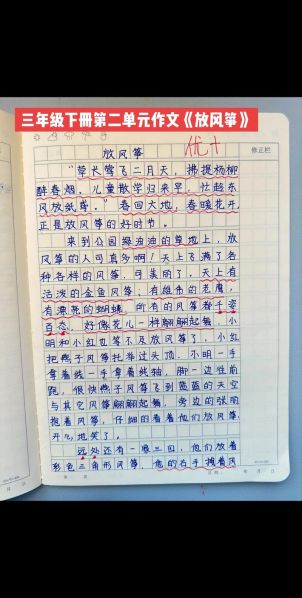 三年级下册第二单元作文《放风筝》
优+
放风筝
修正栏
"草长莺飞二月天，拂堤杨柳
醉春烟，儿童散学归来早，忙趁东
风放纸鸢。"春回大地，春暖花开，
正是放风筝的好时节。
来到公园绿油油的草地上，放
风筝的人可真多啊！天上飞满了各
种各样的风筝，可美丽了，天上有
活泼的金鱼风筝，有雄伟的老鹰，
有漂亮的蝴蝶，所有的风筝都千姿
百态，好像花儿一样翩翩起舞，小
明和小红也等不及放风筝了，小红
把燕子风筝托举过头顶，小明一手
拿着线一手拿着线轴，脚一边往前
跑，很快燕子风筝飞到蓝蓝的天空
与其它风筝翩翩起舞，旁边的张明
抱着风筝，仔细的看着他们放风筝，
开心地笑了。
远处还有一家三口，他们放着
彩色三角形风筝，他的右手拽着风